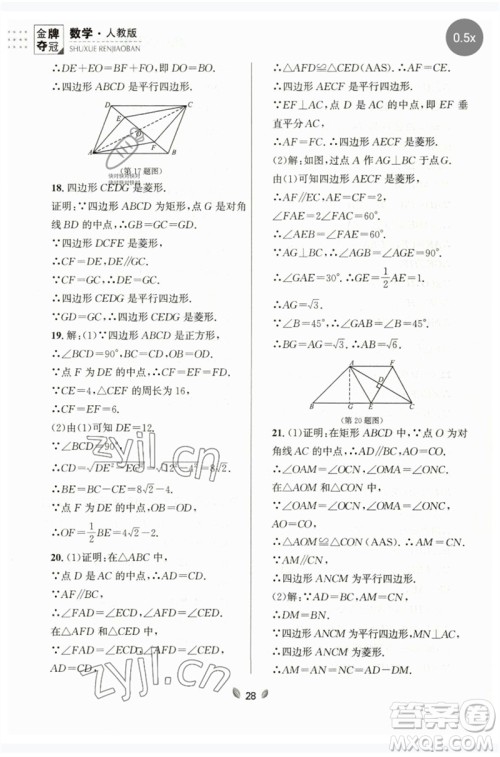 金牌
夺冠
数学·人教版
SHUXUE RENJIAOBAN
0.5x
∴DE+EO=BF+FO,即DO=BO.
∴四边形ABCD是平行四边形.
D
C
E
F
A
B
(第17题图)
18. 四边形CEDG是菱形.
证明:∵四边形ABCD为矩形,点G是对角
线BD的中点,∴GB=GC=GD.
∵四边形DCFE是菱形,
∴CF=DE,DE∥GC.
∵CF=GC,∴DE=GC.
∴四边形CEDG是平行四边形.
∵GD=GC,∴四边形CEDG是菱形.
19. 解:(1)∵四边形ABCD是正方形,
∴∠BCD=90°,∴∠DCE=90°.
∵点F为DE的中点,∴CF=EF=DF.
∵CE=4,△CEF的周长为16,
∴CF=EF=6.∴DE=12.
(2)由(1)可知DE=12.
∵∠BCD=90°,
∴CD=√DE²-CE²=√12²-4²=8√2.
∴BC=8√2.∴BE=8√2-4.
∵点O为BD的中点,点F为DE的中点,
∴OF=1/2BE=4√2-2.
20. (1)证明:在△ABC中,
∵点D是AC的中点,∴AD=CD.
∵AF∥BC,
∴∠FAD=∠ECD,∠AFD=∠CED.
∵∠FAD=∠ECD,∠AFD=∠CED,
AD=CD,
∴△AFD≌△CED(AAS).∴AF=CE.
∴四边形AECF是平行四边形.
∵EF⊥AC,点D是AC的中点,∴EF垂
直平分AC,
∴AF=CF.∴平行四边形AECF是菱形.
(2)解:过点A作AG⊥BC于点G,
由(1)可知四边形AECF是菱形,
∴AF∥FC,AE=CF=2.
∴∠AEB=∠FCE=60°.
∵AG⊥BC,∴∠AGB=∠AGE=90°.
∴∠GAE=30°.∴GE=1/2AE=1.
∴AG=√3.
∵∠B=45°,∴∠GAB=∠B=45°.
∴BG=AG=√3.∴AB=√6.
A
F
D
B
G
E
C
(第20题图)
21. (1)证明:在矩形ABCD中,∵点O为对
角线AC的中点,∴AD∥BC,AO=CO.
∴∠OAM=∠OCN,∠OMA=∠ONC.
∴△AOM≌△CON(AAS).∴AM=CN.
∵AM∥CN,
∴四边形ANCM为平行四边形.
(2)解:∵四边形ANCM为矩形,
∴AD=BC.
∵四边形ANCM为平行四边形,MN⊥AC,
∴四边形ANCM为菱形.
∴AM=AN=NC=AD-DM.
28
zyjl.cn
答案圈
MXQE.COM